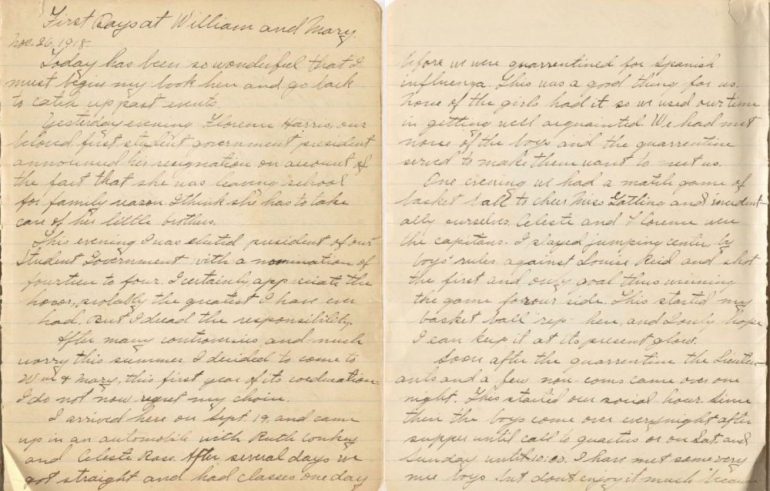 First Days at William and Mary.
Nov. 26, 1918
Today has been so wonderful that I
must begin my book here and go back
to catch up past events.
Yesterday evening Florence Harris, our
beloved first student government president
announced her resignation on account of
the fact that she was leaving school
for family reason. I think she has to take
care of her little brothers.
This evening I was elected president of our
Student Government with a nomination of
fourteen to four. I certainly appreciate the
honor, probably the greatest I have ever
had. But I dread the responsibility.
After many controversies and much
worry this summer I decided to come to
Wm & Mary, this first year of its coeducation
I do not now regret my choice.
I arrived here on Sept. 19, and came
up in an automobile with Ruth Conkey
and Celeste Ross. After several days we
got straight and had classes one day
before we were quarrentined for Spanish
influenza. This was a good thing for us.
None of the girls had it, so we used our time
in getting well acquainted. We had met
none of the boys and the quarrentine
served to make them want to meet us.
One evening we had a match game of
basket ball to cheer Miss Gatling and incident-
ally ourselves. Celeste and Florence were
the capitans. I stayed jumping center by
boys' rules against Louise Reid and shot
the first and only goal thus winning
the game for our side. This started my
basket ball "rep" here, and I only hope
I can keep it at its present glow.
Soon after the quarrentine the Lieuten-
ants and a few non-coms came over one
night. This started our social hour. Since
then the boys come over every night after
supper until call to quarters or on Sat and
Sunday until 10:00. I have met some very
nice boys but dont enjoy it much because